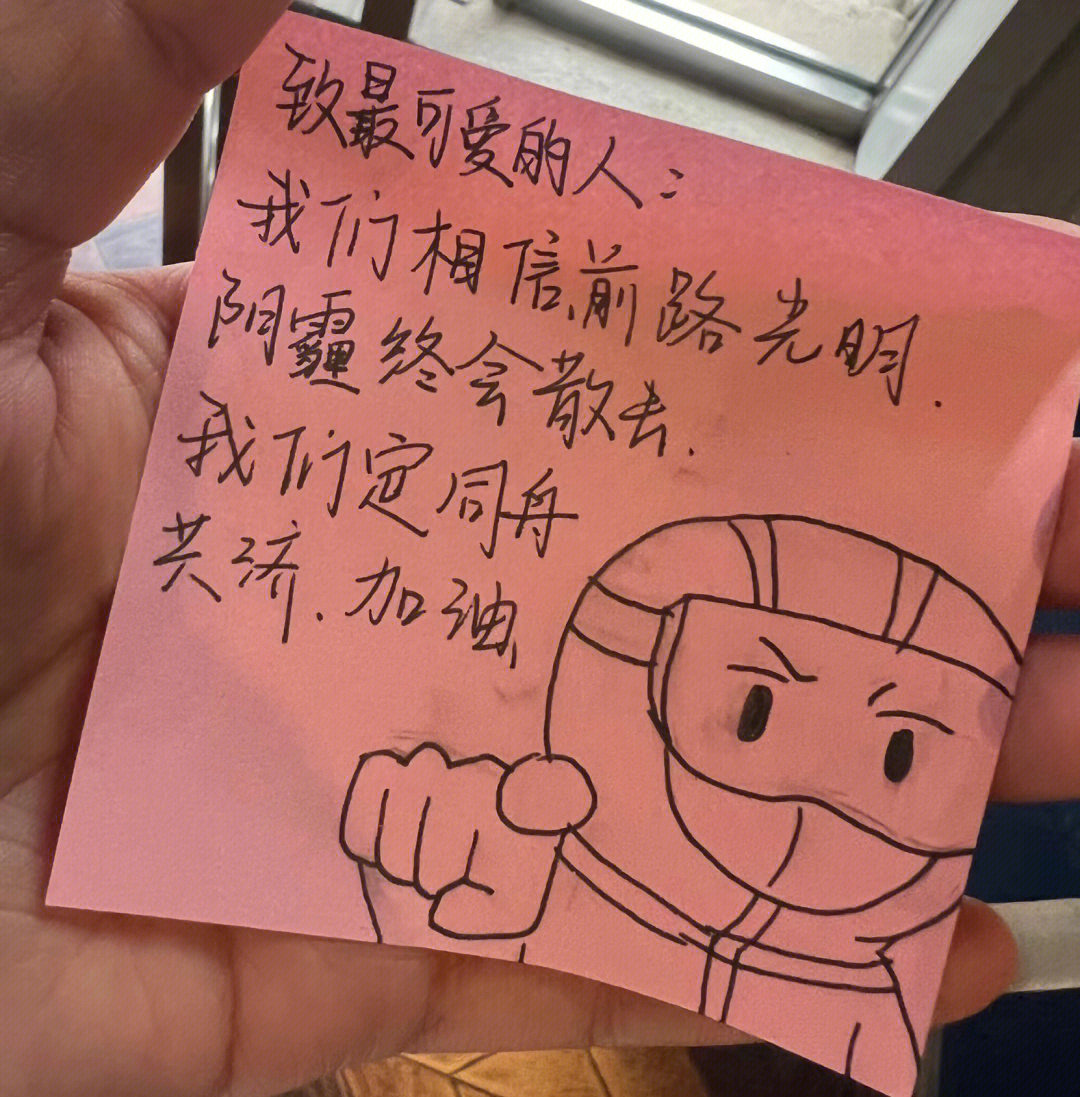 致最可爱的人:
我们相信前路光明.
阴霾终会散去.
我们定同舟
共济.加油